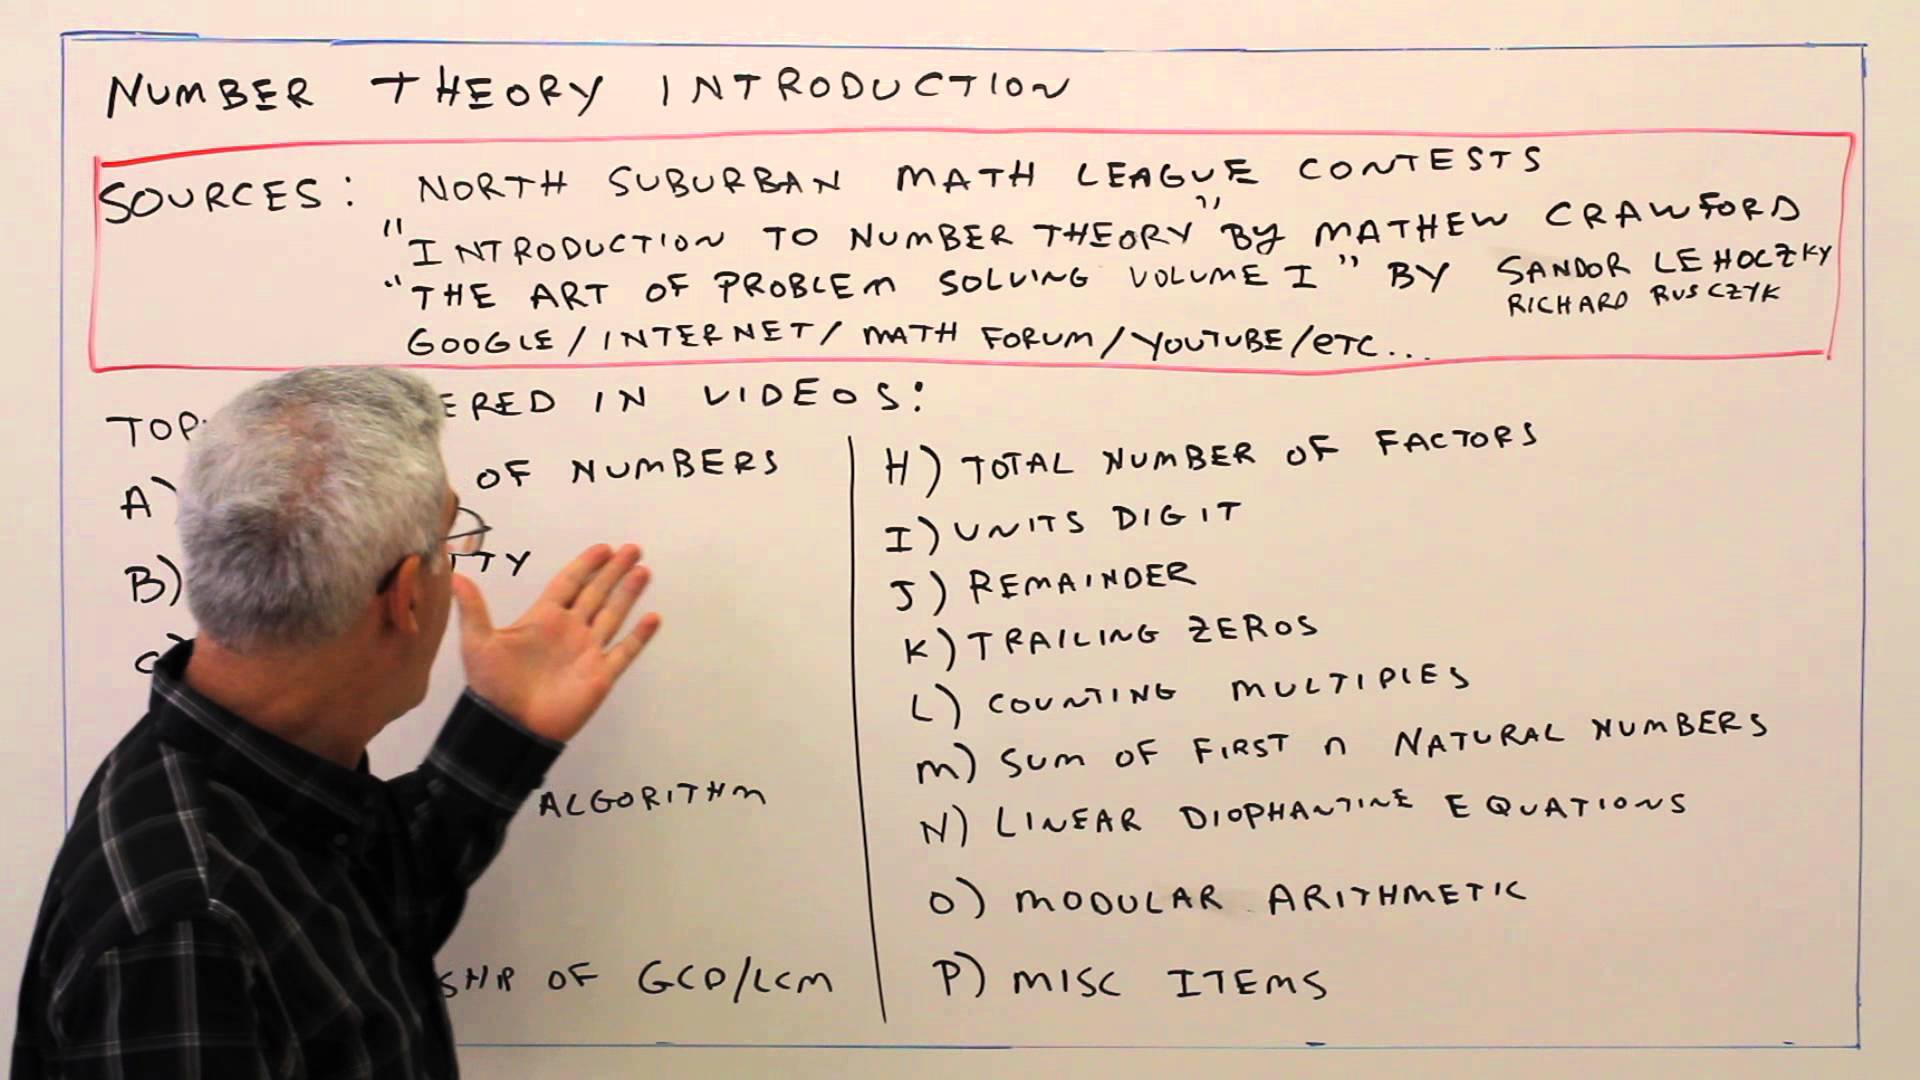 NUMBER THEORY INTRODUCTION
SOURCES: NORTH SUBURBAN MATH LEAGUE CONTESTS
"INTRODUCTION TO NUMBER THEORY" BY MATHEW CRAWFORD
"THE ART OF PROBLEM SOLVING VOLUME I" BY SANDOR LEHOCZKY
RICHARD RUSCZYK
GOOGLE/INTERNET/MATH FORUM/YOUTUBE/ETC...
ERED IN VIDEOS:
A) OF NUMBERS
B)
ALGORITHM
OF GCD/LCM
H) TOTAL NUMBER OF FACTORS
I) UNITS DIGIT
J) REMAINDER
K) TRAILING ZEROS
L) COUNTING MULTIPLES
M) SUM OF FIRST n NATURAL NUMBERS
N) LINEAR DIOPHANTINE EQUATIONS
O) MODULAR ARITHMETIC
P) MISC ITEMS